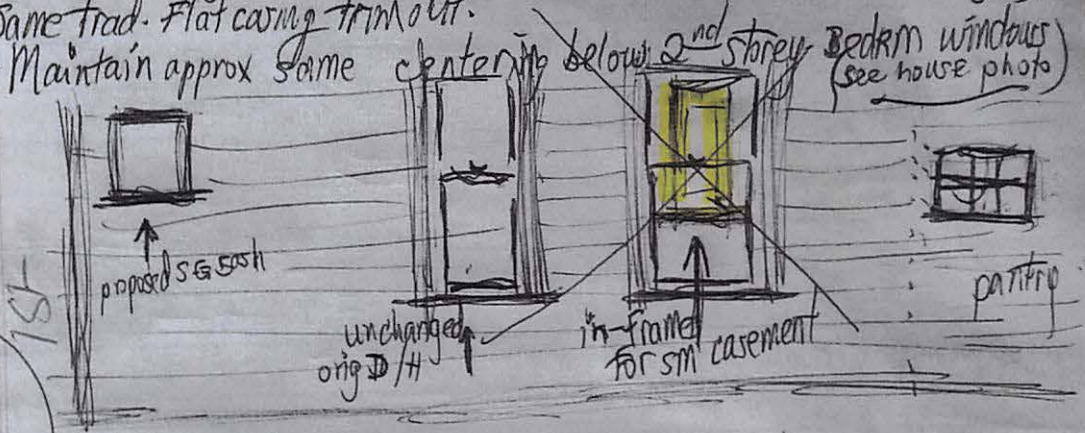 Same trad. Flat casing trim out.
Maintain approx same centering below 2nd storey Bedrm windows
(see house photo)
proposed SG sash
unchanged
orig D/H
in-framed
for sm casement
pantry
1st